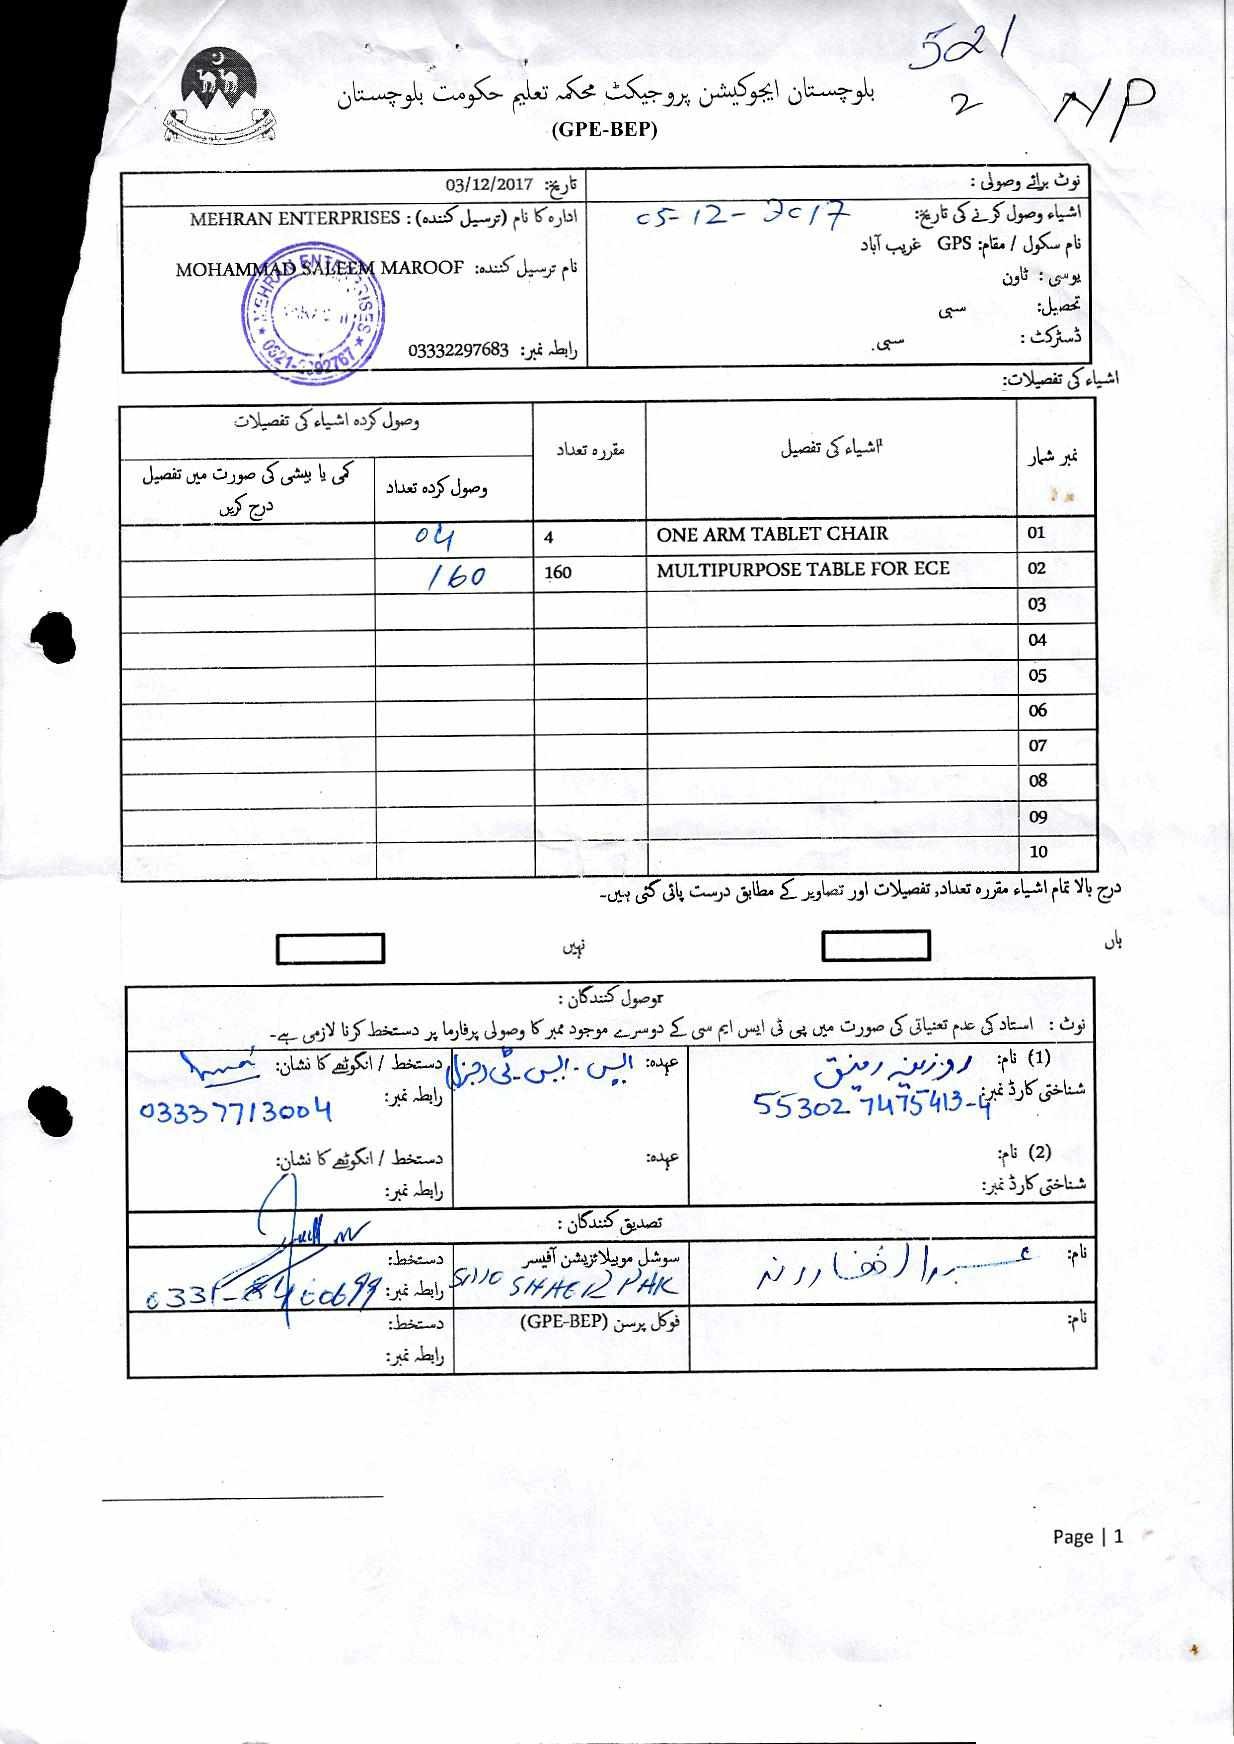 521
2
NP
بلوچستان ایجوکیشن پروجیکٹ محکمہ تعلیم حکومت بلوچستان
(GPE-BEP)
نوٹ برائے وصولی :
اشیاء وصول کرنے کی تاریخ: 05-12-2017
نام سکول / مقام: GPS غریب آباد
یوسی : ٹاون
تحصیل: سبی
ڈسٹرکٹ : سبی.
تاریخ: 03/12/2017
ادارہ کا نام (ترسیل کنندہ) : MEHRAN ENTERPRISES
نام ترسیل کنندہ: MOHAMMAD SALEEM MAROOF
رابطہ نمبر: 03332297683
MEHRAN ENTERPRISES
اشیاء کی تفصیلات:
نمبر شمار
اشیاء کی تفصیل
مقررہ تعداد
وصول کردہ اشیاء کی تفصیلات
وصول کردہ تعداد
کمی یا بیشی کی صورت میں تفصیل
درج کریں
01 ONE ARM TABLET CHAIR 4 04
02 MULTIPURPOSE TABLE FOR ECE 160 160
03
04
05
06
07
08
09
10
درج بالا تمام اشیاء مقررہ تعداد, تفصیلات اور تصاویر کے مطابق درست پائی گئی ہیں۔
ہاں
نہیں
وصول کنندگان :
نوٹ : استاد کی عدم تعیناتی کی صورت میں پی ٹی ایس ایم سی کے دوسرے موجود ممبر کا وصولی پرفارما پر دستخط کرنا لازمی ہے۔
(1) نام: روزینہ رفیق
شناختی کارڈ نمبر: 553027475413-4
عہدہ: ایس۔ایس۔ٹی (جنرل)
دستخط / انگوٹھے کا نشان:
رابطہ نمبر:
03337713004
(2) نام:
شناختی کارڈ نمبر:
عہدہ:
دستخط / انگوٹھے کا نشان:
رابطہ نمبر:
تصدیق کنندگان :
نام: عبدالغفار رند
سوشل موبیلائزیشن آفیسر
دستخط:
رابطہ نمبر:
نام:
فوکل پرسن (GPE-BEP)
دستخط:
رابطہ نمبر:
Page | 1